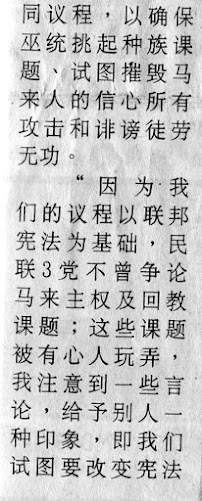 同议程，以确保
巫统挑起种族课
题、试图摧毁马
来人的信心所有
攻击和诽谤徒劳
无功。
“因为我
们的议程以联邦
宪法为基础，民
联3党不曾争论
马来主权及回教
课题；这些课题
被有心人玩弄，
我注意到一些言
论，给予别人一
种印象，即我们
试图要改变宪法